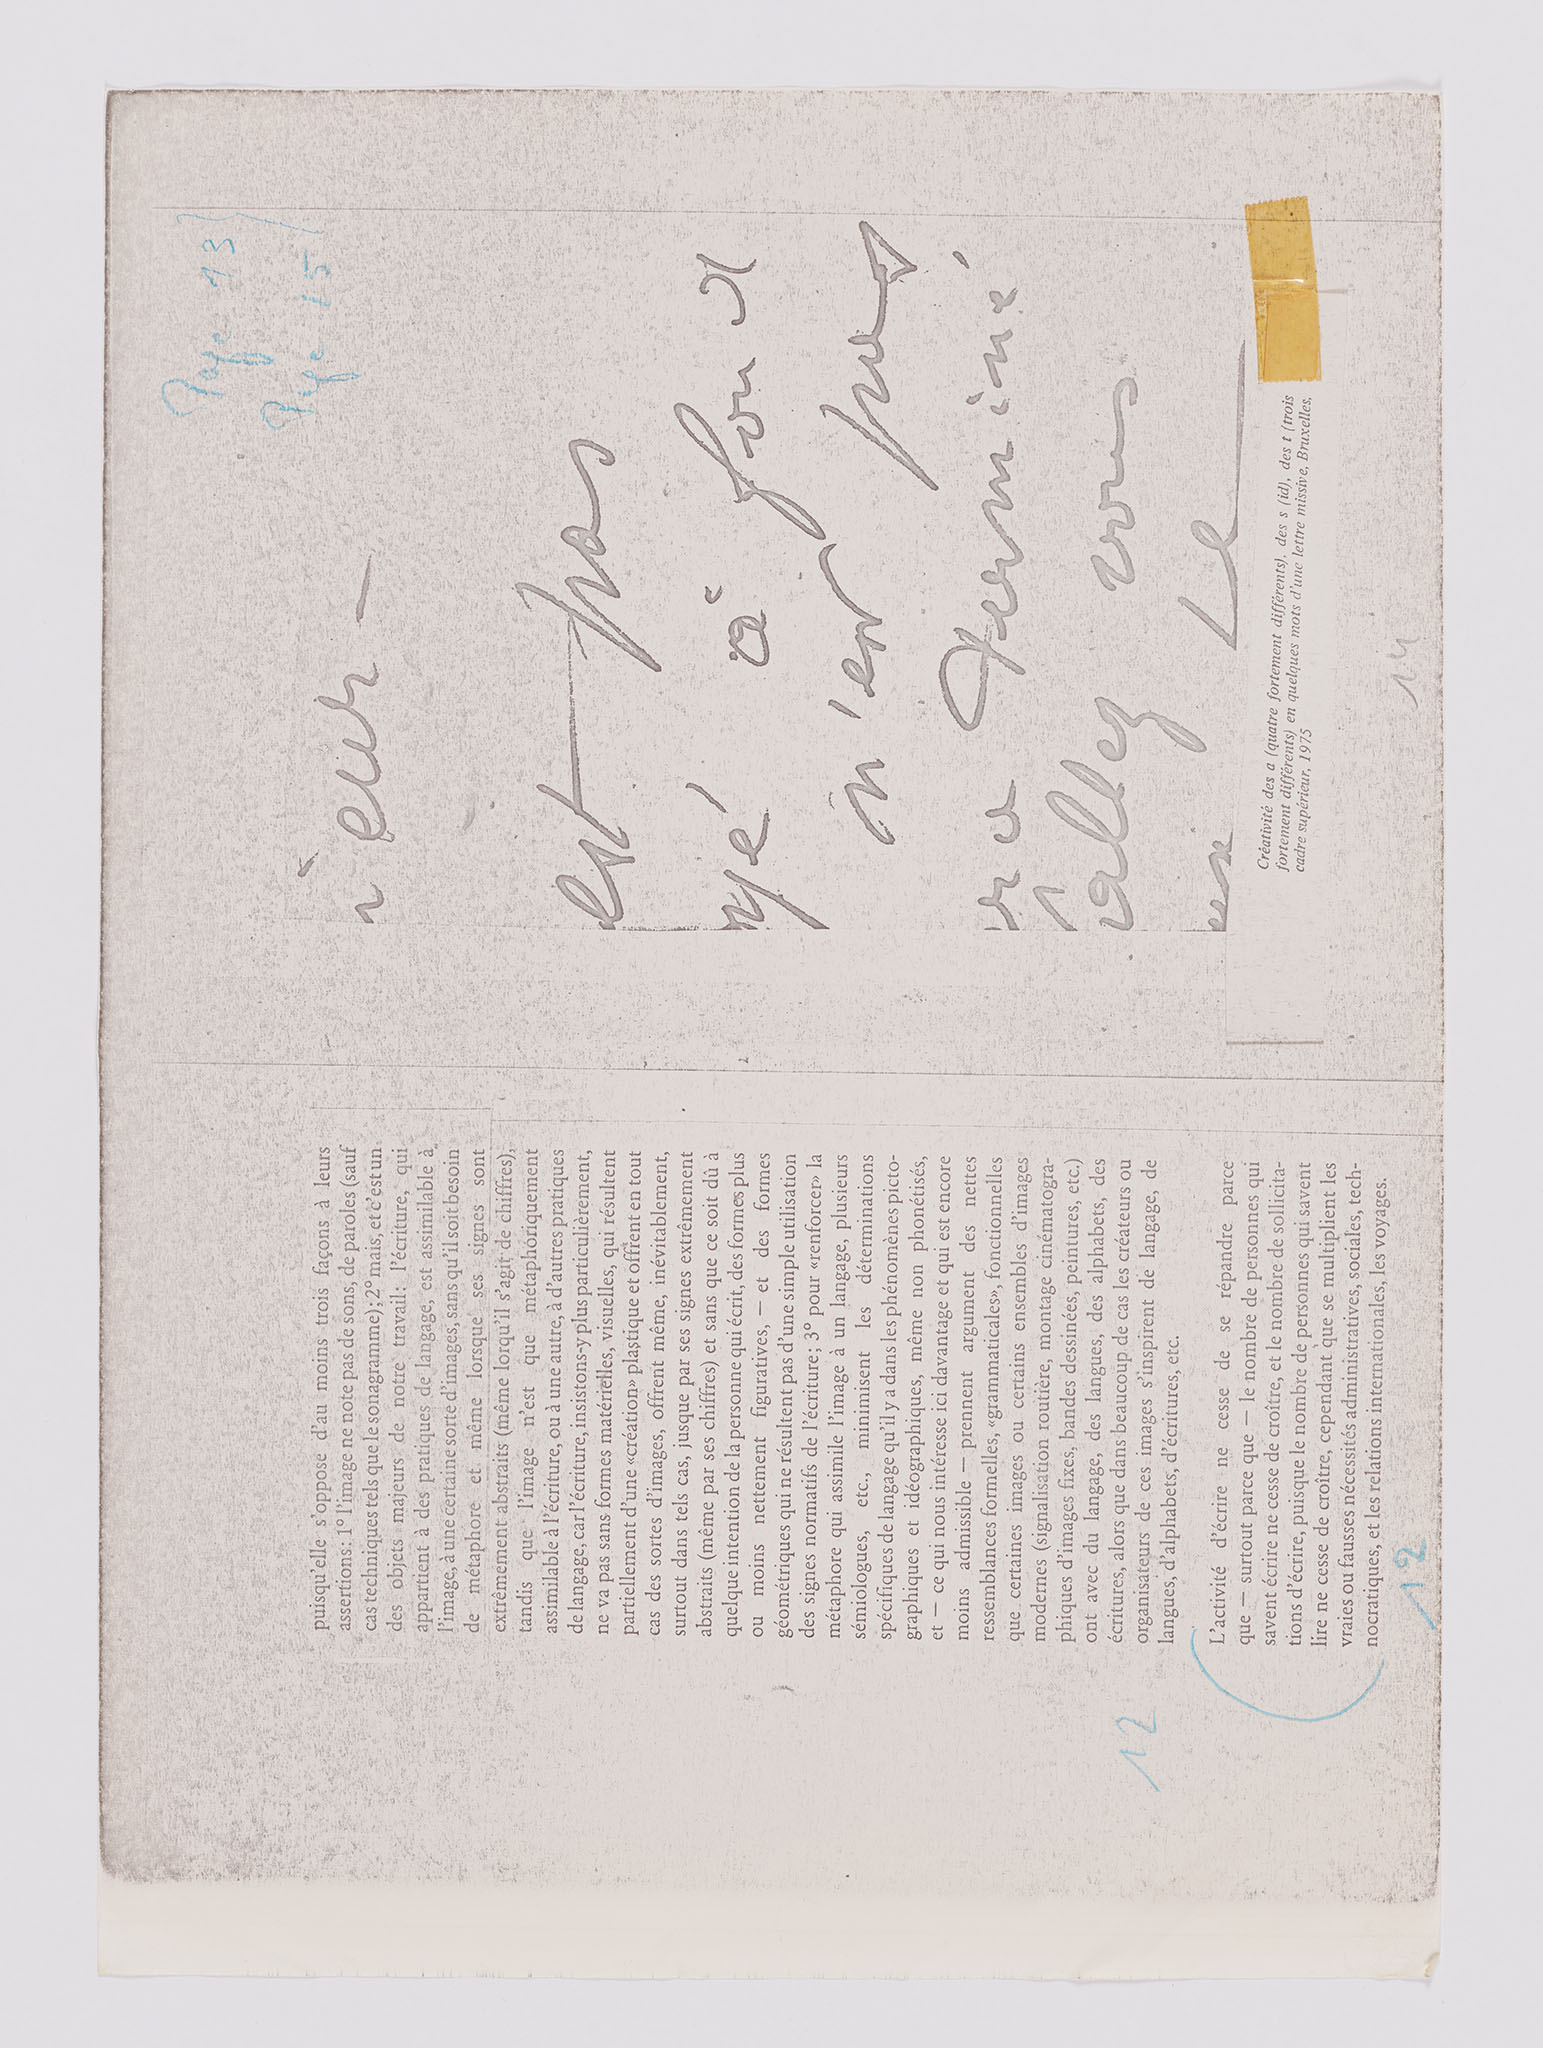 puisqu'elle s'oppose d'au moins trois façons à leurs
assertions: 1° l'image ne note pas de sons, de paroles (sauf
cas techniques tels que le sonagramme); 2° mais, et c'est un
des objets majeurs de notre travail: l'écriture, qui
appartient à des pratiques de langage, est assimilable à
l'image, à une certaine sorte d'images, sans qu'il soit besoin
de métaphore et même lorsque ses signes sont
extrêmement abstraits (même lorqu'il s'agit de chiffres),
tandis que l'image n'est que métaphoriquement
assimilable à l'écriture, ou à une autre, à d'autres pratiques
de langage, car l'écriture, insistons-y plus particulièrement,
ne va pas sans formes matérielles, visuelles, qui résultent
partiellement d'une «création» plastique et offrent en tout
cas des sortes d'images, offrent même, inévitablement,
surtout dans tels cas, jusque par ses signes extrêmement
abstraits (même par ses chiffres) et sans que ce soit dû à
quelque intention de la personne qui écrit, des formes plus
ou moins nettement figuratives, — et des formes
géométriques qui ne résultent pas d'une simple utilisation
des signes normatifs de l'écriture; 3° pour «renforcer» la
métaphore qui assimile l'image à un langage, plusieurs
sémiologues, etc., minimisent les déterminations
spécifiques de langage qu'il y a dans les phénomènes picto-
graphiques et idéographiques, même non phonétisés,
et — ce qui nous intéresse ici davantage et qui est encore
moins admissible — prennent argument des nettes
ressemblances formelles, «grammaticales», fonctionnelles
que certaines images ou certains ensembles d'images
modernes (signalisation routière, montage cinématogra-
phiques d'images fixes, bandes dessinées, peintures, etc.)
ont avec du langage, des langues, des alphabets, des
écritures, alors que dans beaucoup de cas les créateurs ou
organisateurs de ces images s'inspirent de langage, de
langues, d'alphabets, d'écritures, etc.
12
L'activité d'écrire ne cesse de se répandre parce
que — surtout parce que — le nombre de personnes qui
savent écrire ne cesse de croître, et le nombre de sollicita-
tions d'écrire, puisque le nombre de personnes qui savent
lire ne cesse de croître, cependant que se multiplient les
vraies ou fausses nécessités administratives, sociales, tech-
nocratiques, et les relations internationales, les voyages.
12
Page 13
Page 15
est pas
à
n'en pas
ra terminé
allez vous
le
Créativité des a (quatre fortement différents), des s (id), des t (trois
fortement différents) en quelques mots d'une lettre missive, Bruxelles,
cadre supérieur, 1975
14